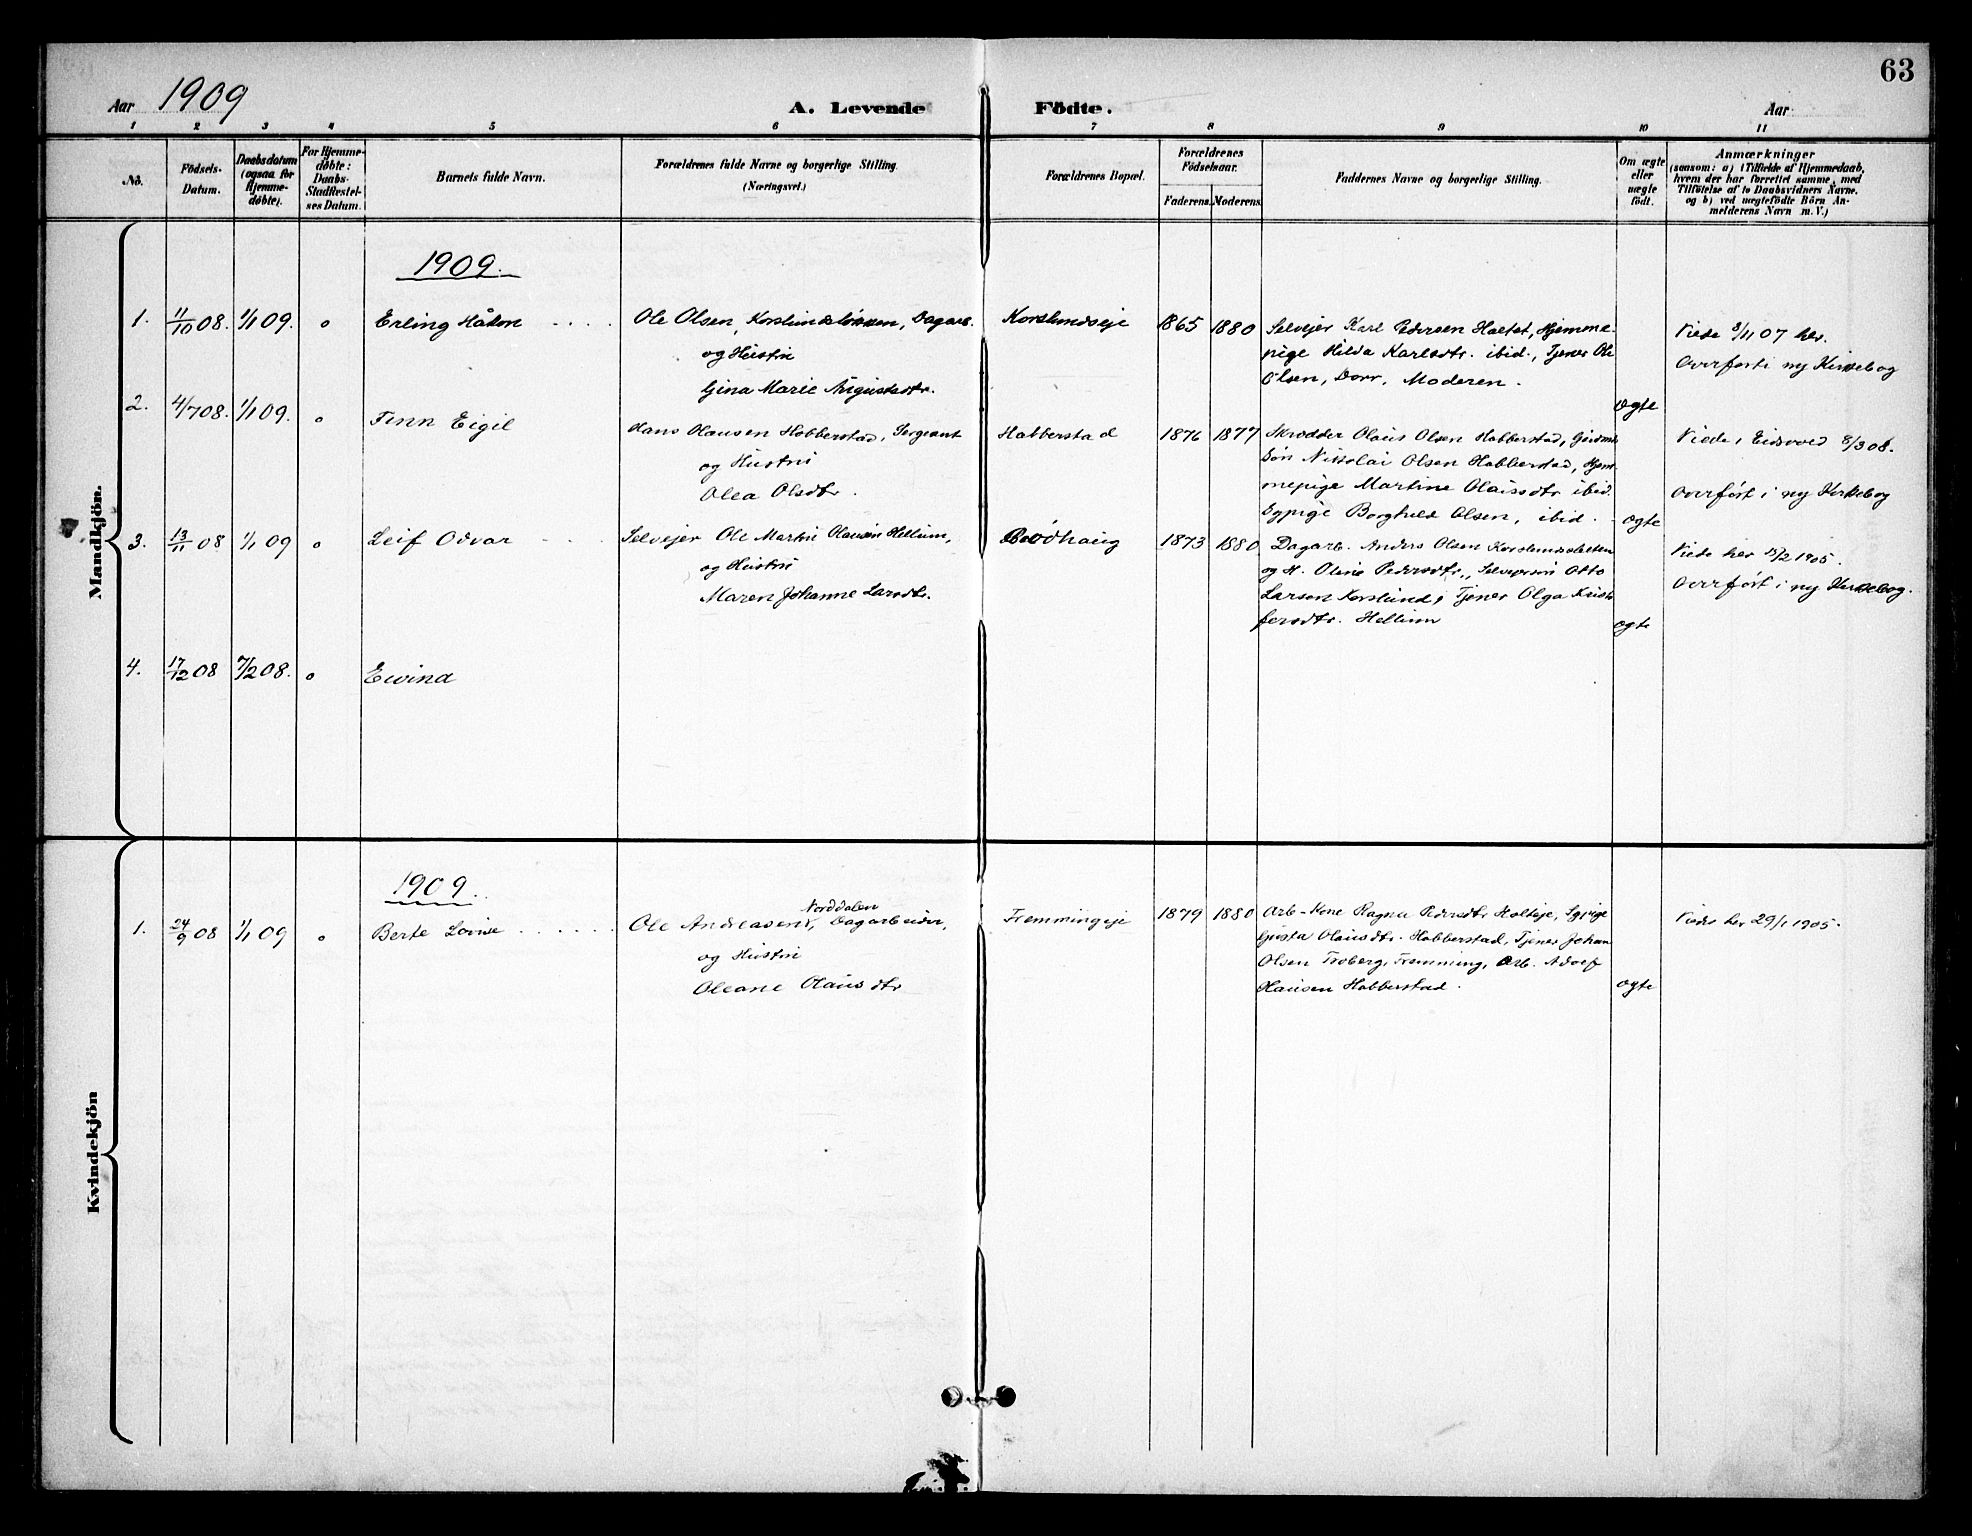 63
Aar 1909
A. Levende Födte.
Aar
1 2 3 4 5 6 7 8 9 10 11
No.
Födsels-
Datum.
Daabsdatum
(ogsaa for
Hjemme-
døbte).
For Hjemme-
døbte:
Daabs-
Stadfestel-
ses Datum.
Barnets fulde Navn.
Forældrenes fulde Navne og borgerlige Stilling.
(Næringsvei.)
Forældrenes Bopæl.
Forældrenes
Födselsaar.
Faderens. Moderens.
Faddernes Navne og borgerlige Stilling.
Om ægte
eller
uægte
födt.
Anmærkninger
(saasom: a) i Tilfælde af Hjemmedaab,
hvem der har forrettet samme, med
Tilföielse af to Daabsvidners Navne,
og b) ved uægtefödte Börn An-
melderens Navn m. V.)
Mandkjön.
1909.
1. 11/10 08. 1/1 09. o Erling Håkon
Ole Olsen, Korslundsløkken, Dagarb.
og Hustru
Gina Marie Augustsdtr.
Korslundseje
1865 1880
Selvejer Karl Pedersen Haltet, Hjemme-
pige Hilda Karlsdtr. ibid., Tjener Ole
Olsen, Dorr, Moderen.
ægte
Viede 3/11 07 her.
Overført i ny Kirkebog
2. 4/7 08. 1/1 09. o Finn Eigil
Hans Olausen Habberstad, Sergeant
og Hustru
Olea Olsdtr.
Habberstad
1876 1877
Skrædder Olaus Olsen Habberstad, Gaardm.
Søn Nikolai Olsen Habberstad, Hjem-
mepige Martine Olausdtr ibid.
Sypige Borghild Olsen, ibid.
ægte
Viede i Eidsvold 8/3 08.
Overført i ny Kirkebog
3. 13/11 08 1/1 09 o Leif Odvar
Selvejer Ole Martin Olausen Hellum,
og Hustru
Maren Johanne Larsdtr.
Brødhaug
1873 1880
Dagarb. Anders Olsen Korslundsletten
og H. Oline Pedersdtr., Selvejersøn Otto
Larsen Korslund, Tjener Olga Kristo
fersdtr. Hellum
ægte
Viede her 15/2 1905.
Overført i ny Kirkebog.
4. 17/12 08 7/2 08. o Eivind
Kvindekjön
1909.
1. 24/9 08 1/1 09 o Berte Lovise
Norddalen
Ole Andreasen, Dagarbeider,
og Hustru
Oleane Olausdtr
Fremmingeje
1879 1880
Arb.-Kone Ragna Pedersdtr Holteje, Sypige
Gusta Olausdtr. Habberstad, Tjener Johan
Olsen Troberg, Fremming, Arb. Adolf
Hansen Habberstad.
ægte
Viede her 29/1 1905.